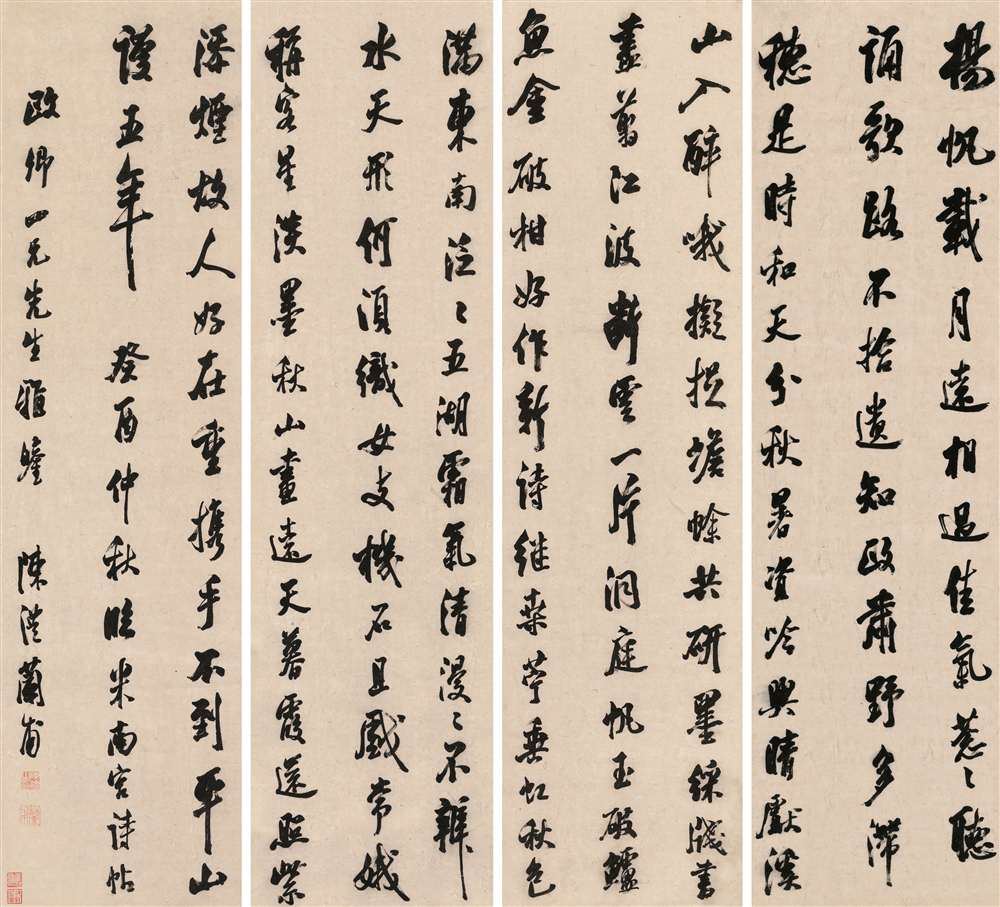 揚帆載月遠相過佳氣葱〻聽
誦歌路不拾遺知政肅野多滯
穗是時和天分秋暑資吟興晴獻溪
山入醉哦擬捉蟾蜍共研墨綵牋書
盡剪江波斷雲一片洞庭帆玉破鱸
魚金破柑好作新詩继桑苧垂虹秋色
滿東南泛〻五湖霜氣清漫〻不辨
水天形何須織女支機石且戲常娥
稱客星淡墨秋山畫遠天暮霞還照紫
添煙故人好在重攜手不到平山
謾五年 癸酉仲秋臨米南宮詩帖
政卿四兄先生雅鑒 陳澧蘭甫